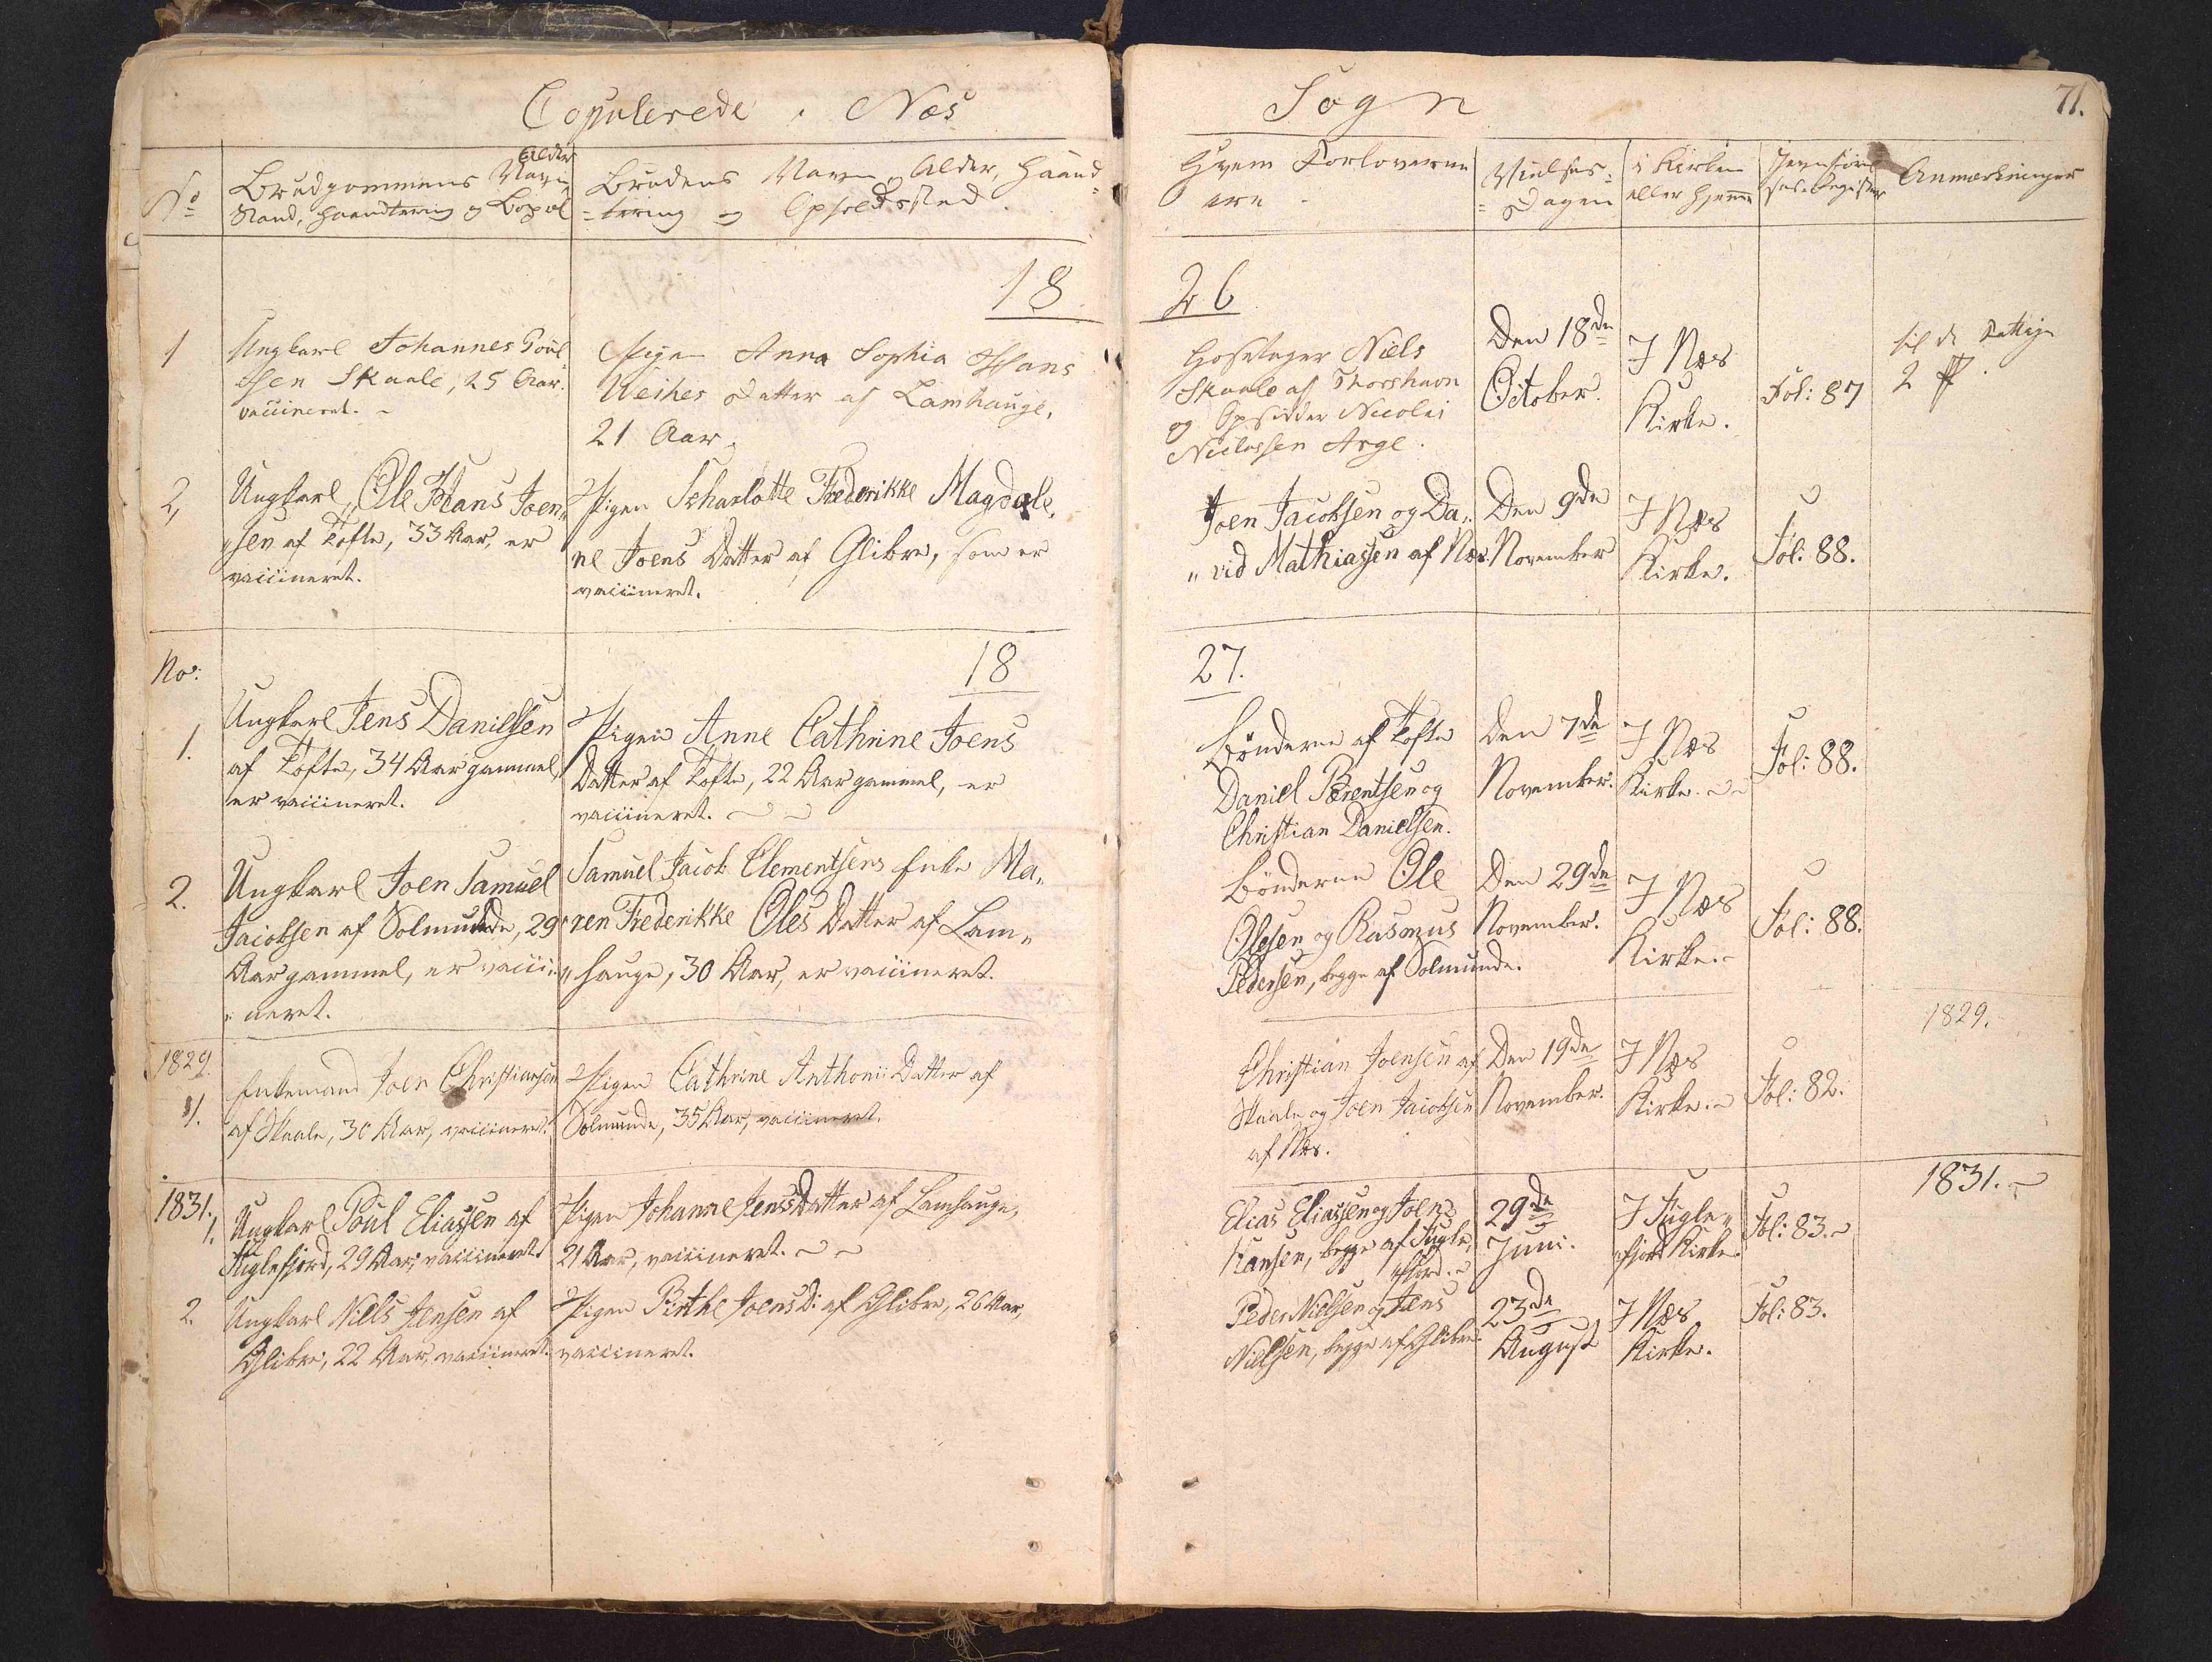 Copulerede i Næs
No
Brudgommens Navn, Alder
Stand, Haandtering og Bopæl
Brudens Navn, Alder, Haand=
=tering og Opholdssted.
18
1
Ungkarl Johannes Poul
sen Skaale, 25 Aar.
vaccineret.
Pigen Anna Sophia Hans
Weihes Datter af Lamhauge,
21 Aar.
2,
Ungkarl Ole Hans Joen„
„sen af Tofte, 33 Aar, er
vaccineret.
Pigen Scharlotte Frederikke Magdale„
ne Joens Datter af Glibre, som er
vaccineret.
No:
18
1.
Ungkarl Jens Danielsen
af Tofte, 34 Aar gammel,
er vaccineret.
Pigen Anne Cathrine Joens
Datter af Tofte, 22 Aar gammel, er
vaccineret.
2.
Ungkarl Joen Samuel
Jacobsen af Solmunde, 29
Aar gammel, er vacci„
„neret.
Samuel Jacob Clementsens Enke Ma„
ren Frederikke Oles Datter af Lam„
„hauge, 30 Aar, er vaccineret.
1829.
1.
Enkemand Joen Christiansen
af Skaale, 30 Aar, vaccineret.
Pigen Cathrine Anthonii Datter af
Solmunde, 35 Aar, vaccineret.
1831.
1.
Ungkarl Poul Eliasen af
Fuglefjord, 29 Aar, vaccineret
Pigen Johanne Jens Datter af Lamhauge,
21 Aar, vaccineret.
2.
Ungkarl Niels Jensen af
Glibre, 22 Aar, vaccineret.
Pigen Birthe Joens D: af Glibre, 26 Aar,
vaccineret.
Sogn
71.
Hvem Forloverne
ere
Vielses=
=Dagen
i Kirken
eller Hjemme
Jevnføri
selsregister
Anmærkninger
26
Hosetager Niels
Skaale af Thorshavn
og Opsidder Nicolai
Niclassen Arge.
Den 18de
October.
I Næs
Kirke.
Fol: 87
til de Fattige
2
Joen Jacobsen og Da„
„vid Mathiassen af Næs.
Den 9de
November
I Næs
Kirke.
Fol: 88.
27.
Bønderne af Tofte
Daniel Bærentsen og
Christian Danielsen.
Den 7de
November.
I Næs
Kirke.
Fol: 88.
Bønderne Ole
Olesen og Rasmus
Pedersen, begge af Solmunde.
Den 29de
November.
I Næs
Kirke.
Fol: 88.
1829.
Christian Joensen af
Skaale og Joen Jacobsen
af Næs.
Den 19de
November.
I Næs
Kirke.
Fol: 82.
1831.
Elias Eliasen og Joen
Hansen, begge af Fugle„
fjord.
29de
Juni.
I Fugle„
fjord Kirke.
Fol: 83.
Peder Nielsen og Jens
Nielsen, begge af Glibre.
23de
August
I Næs
Kirke.
Fol: 83.